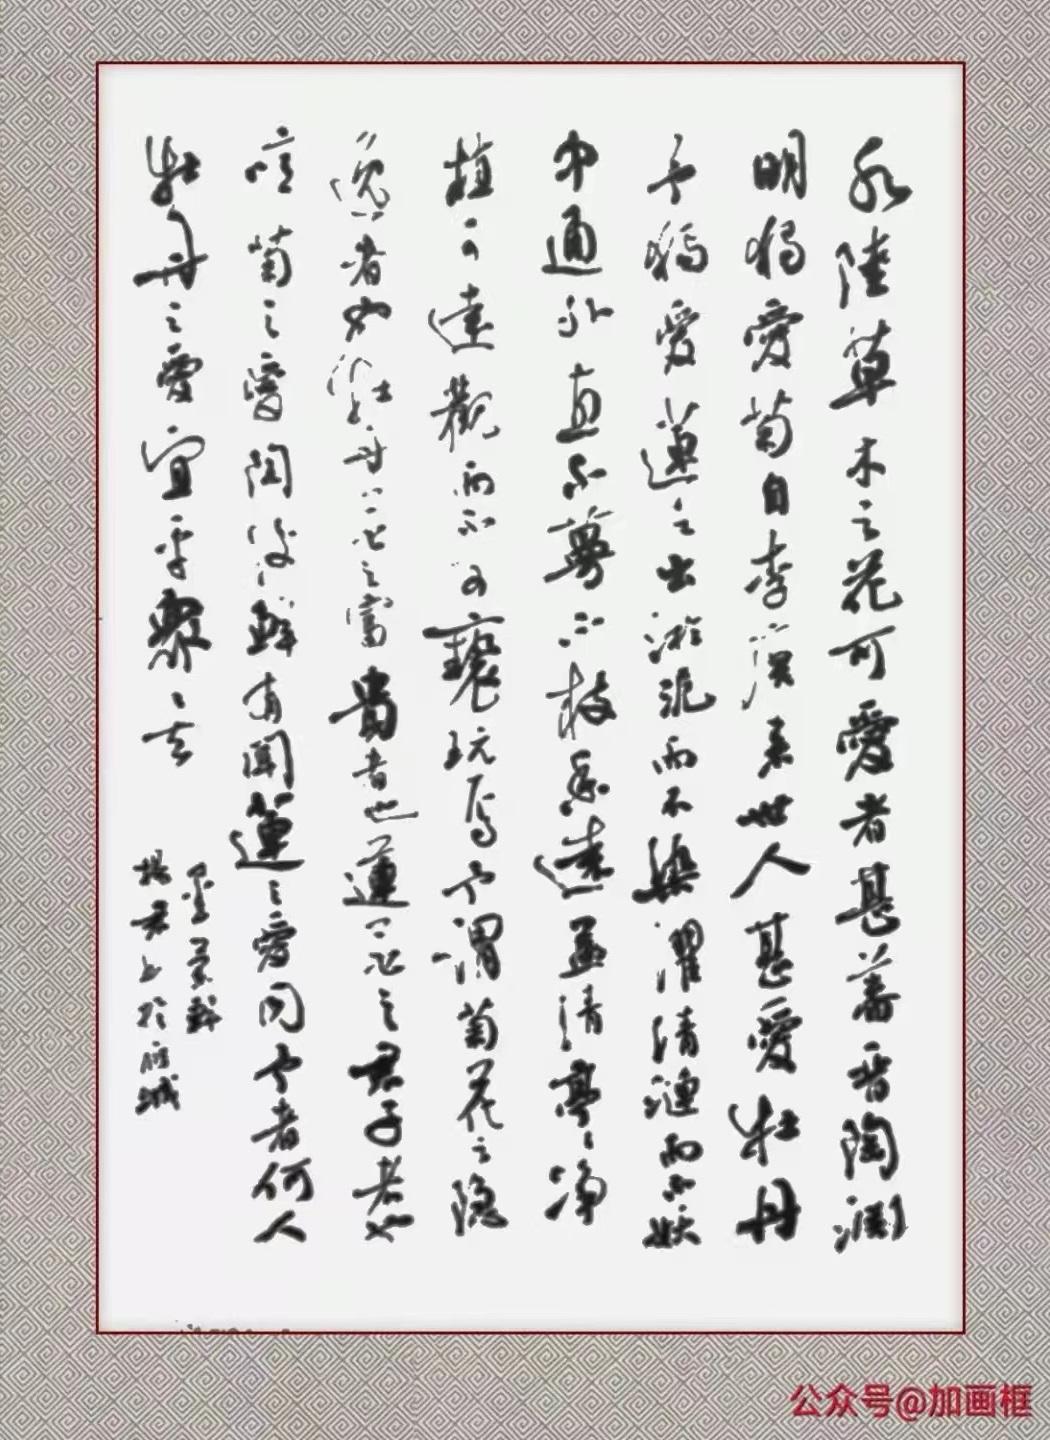 水陸草木之花可愛者甚蕃晋陶淵
明獨愛菊自李唐来世人甚愛牡丹
予獨愛蓮之出淤泥而不染濯清漣而不妖
中通外直不蔓不枝香遠益清亭〻净
植可遠觀而不可褻玩焉予謂菊花之隐
逸者也牡丹花之富貴者也蓮花之君子者也
噫菊之愛陶後鮮有聞蓮之愛同予者何人
牡丹之愛宜乎眾矣
公众号@加画框